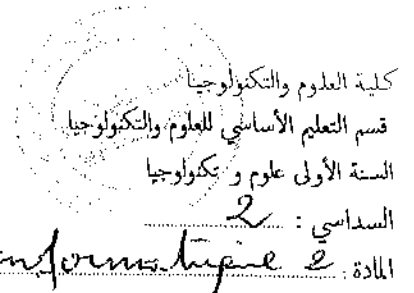 كلية العلوم والتكنولوجيا
قسم التعليم الأساسي للعلوم والتكنولوجيا
السنة الأولى علوم و تكنولوجيا
السداسي : 2
المادة : informatique 2